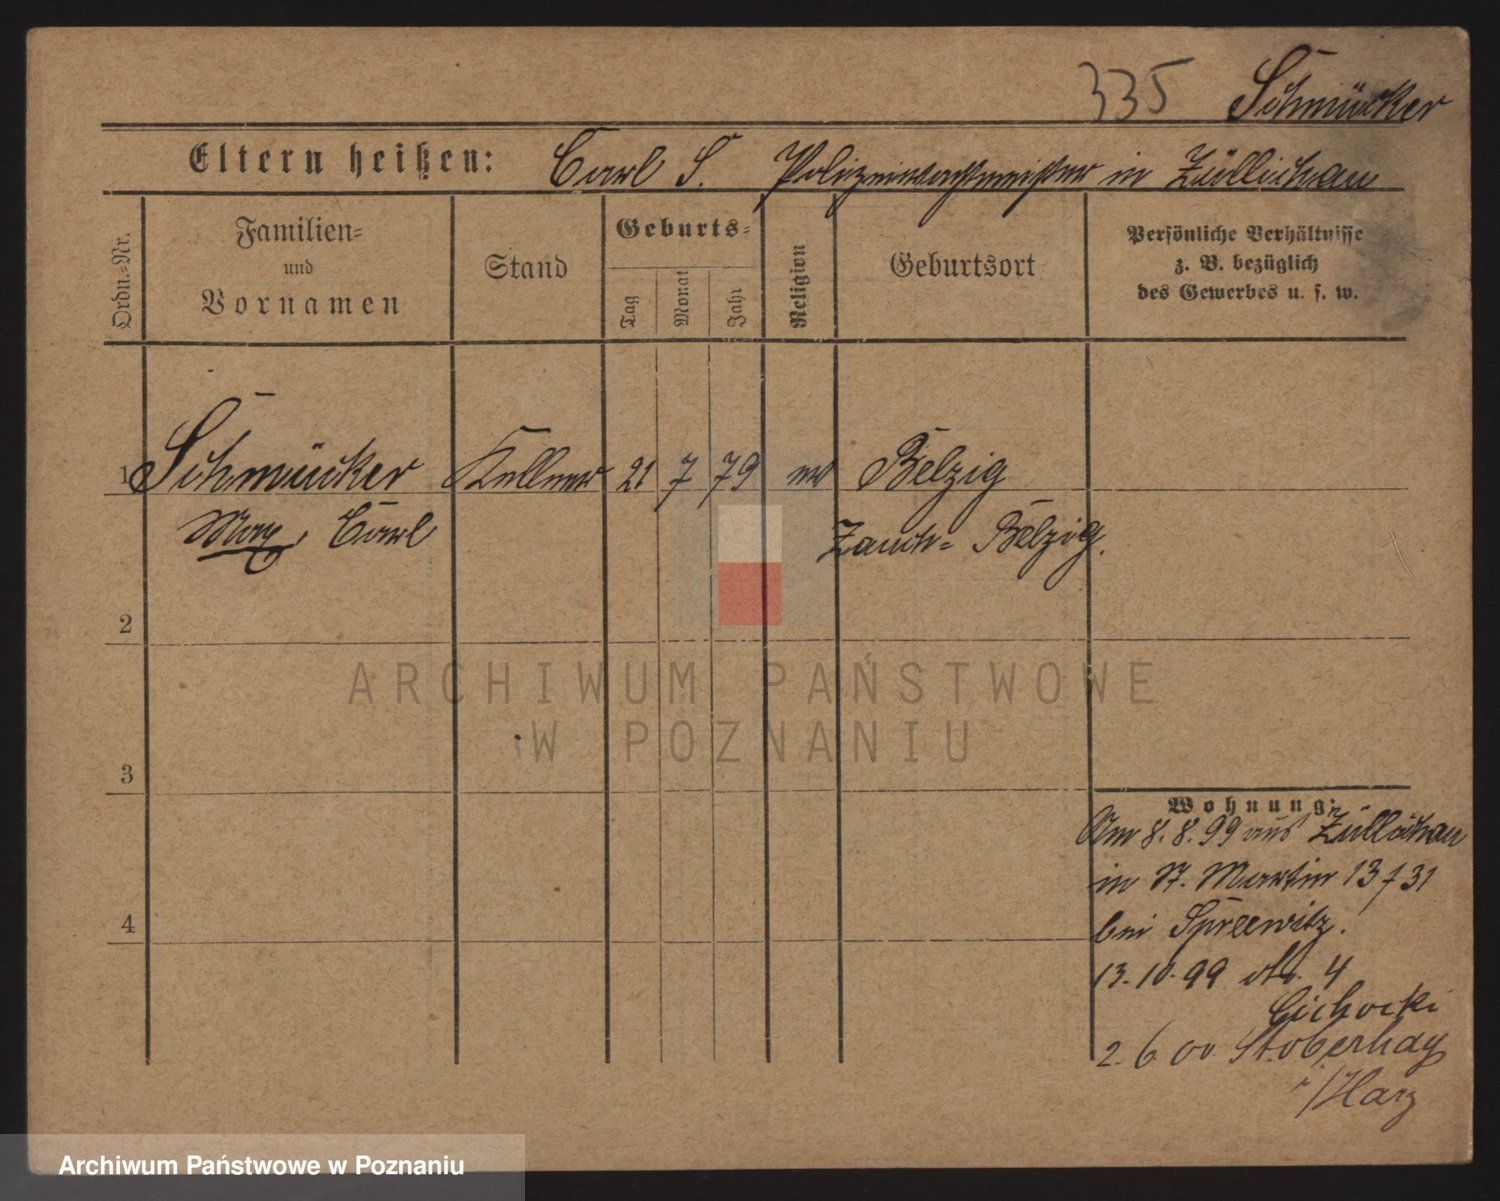 335 Schmücker
Eltern heißen: Carl S. Polizeiwachtmeister in Züllichau
Ordn.-Nr.
Familien-
und
Vornamen
Stand
Geburts-
Tag
Monat
Jahr
Religion
Geburtsort
Persönliche Verhältnisse
z. B. bezüglich
des Gewerbes u. s. w.
1 Schmücker Kellner 21 7 79 ev Belzig
Max, Carl Zauch- Belzig.
2
ARCHIWUM PAŃSTWOWE
W POZNANIU
3
4
Wohnung:
Am 8.8.99 aus Züllichau
in St. Martin 13 / 31
bei Spreewitz.
13.10.99 do. 4
Cichocki
2.6.00 Stoberhay
i/Harz
Archiwum Państwowe w Poznaniu